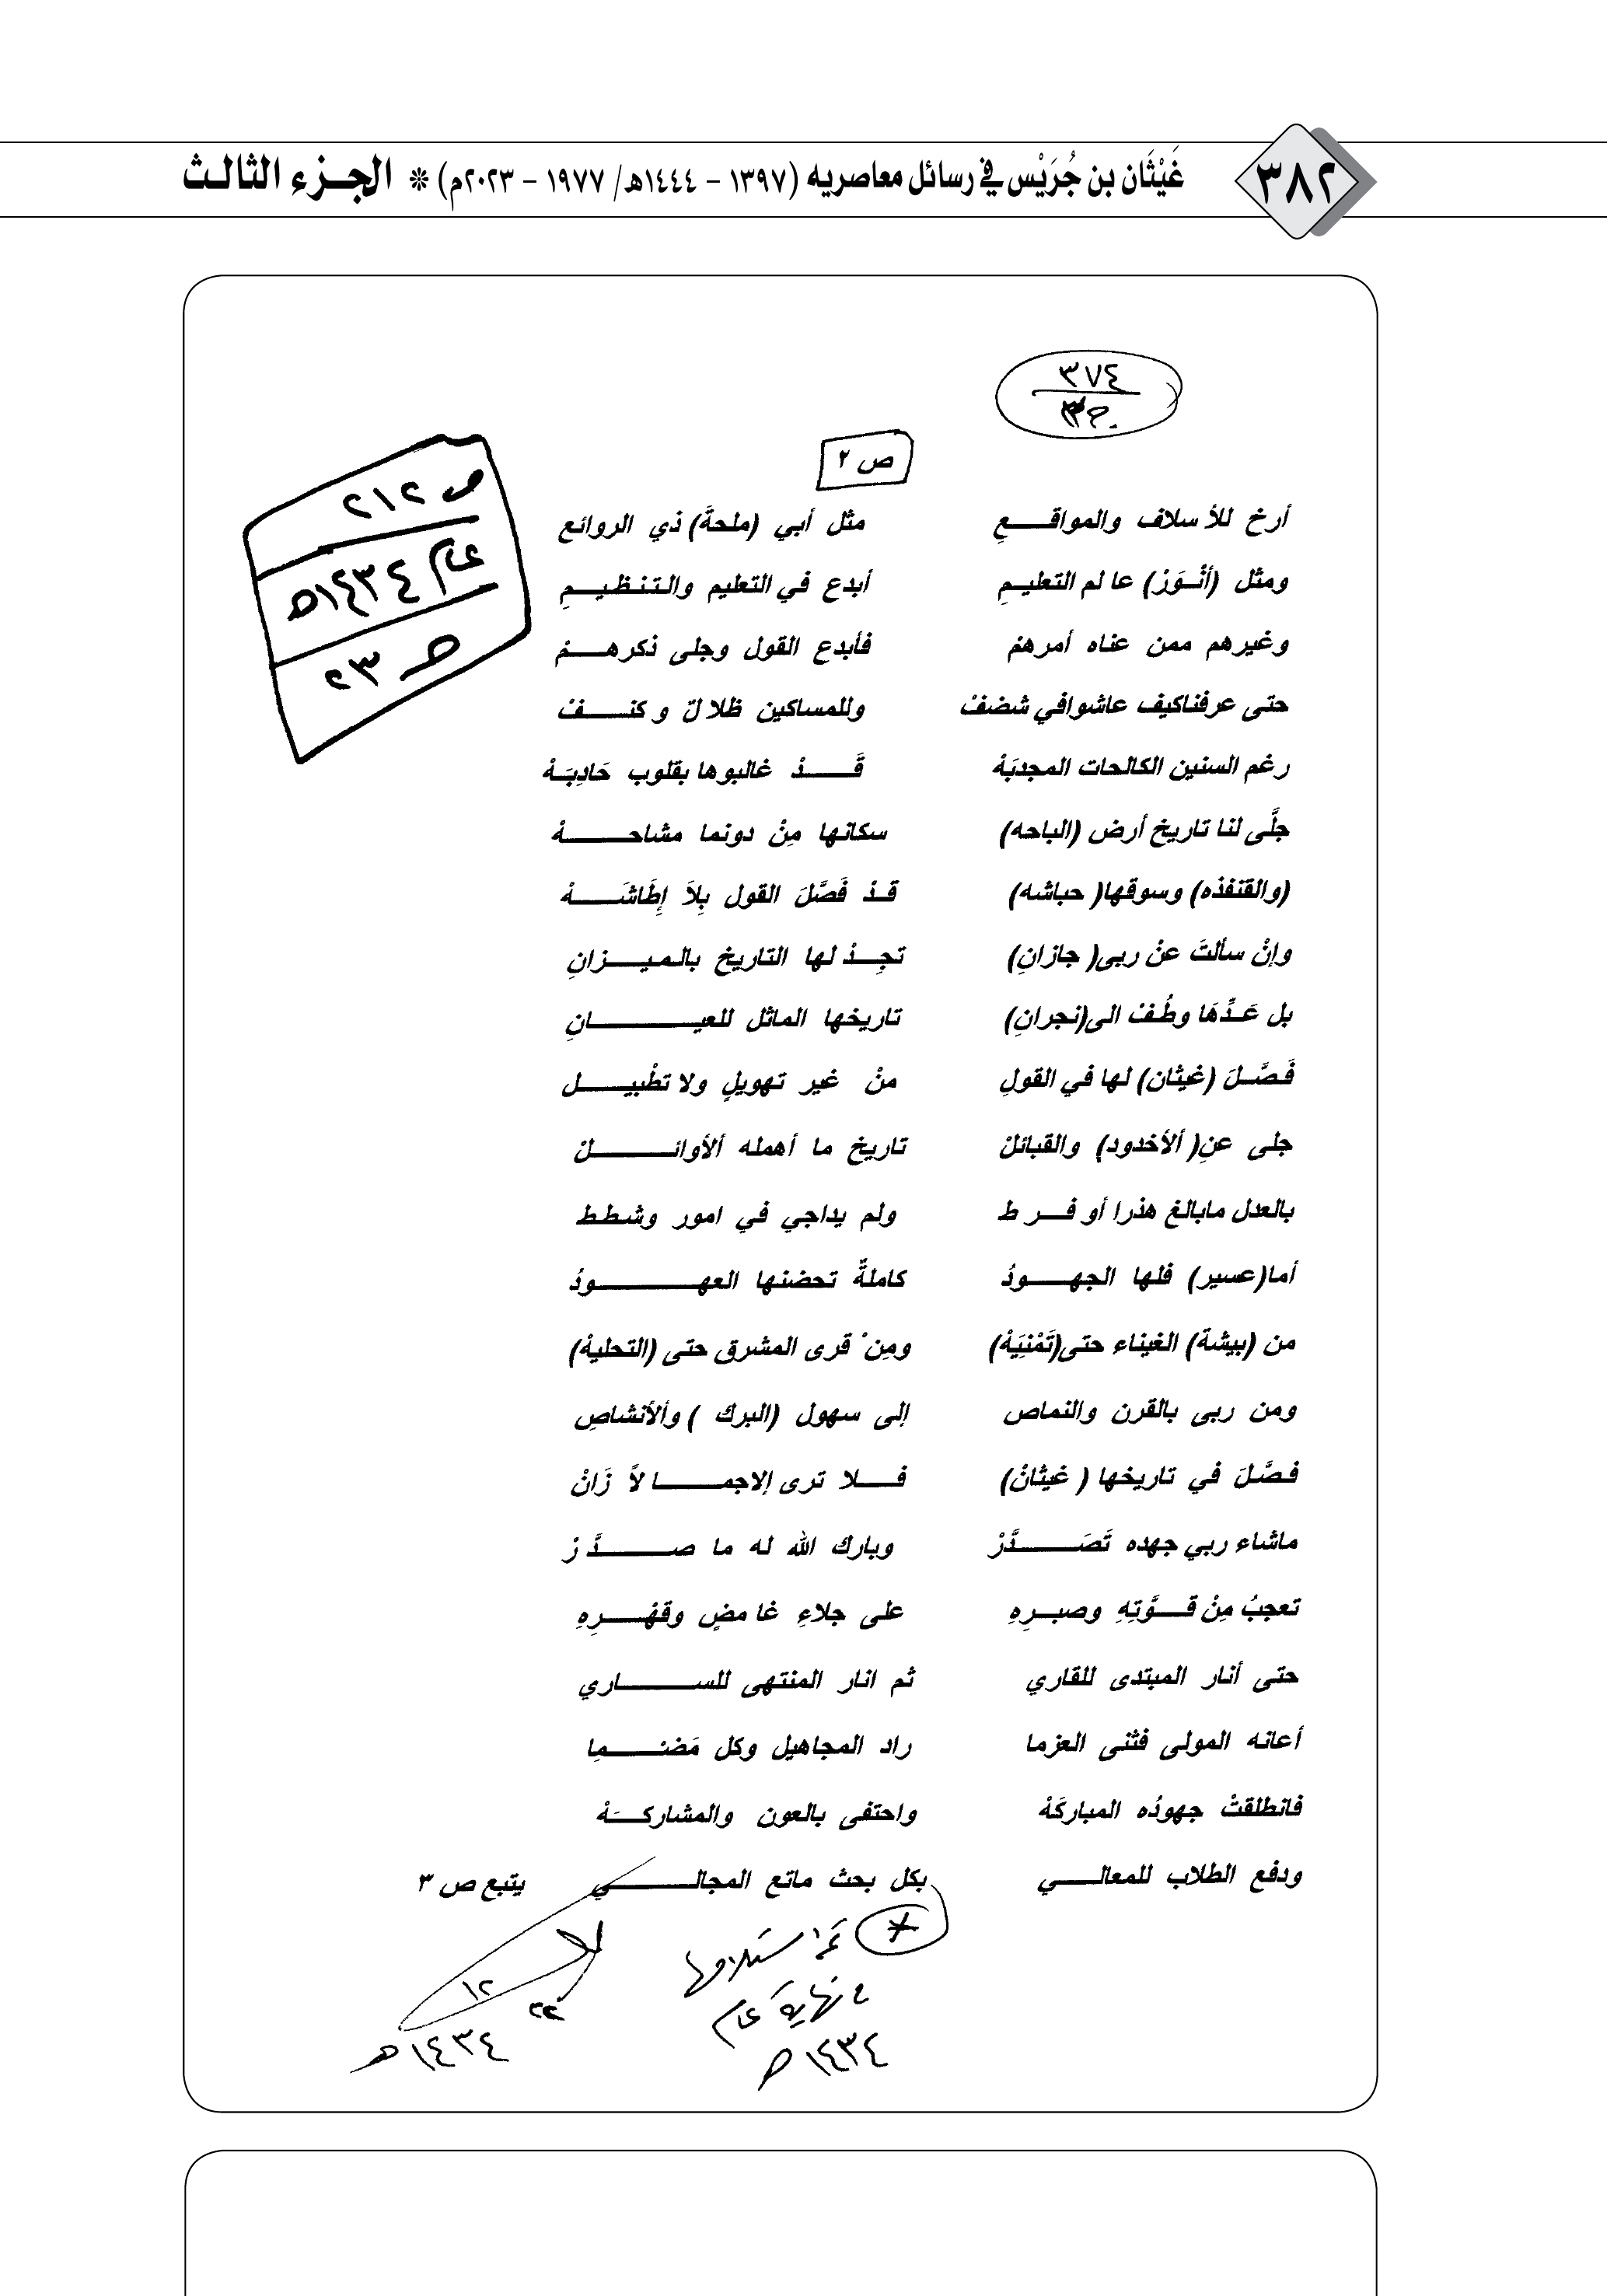 ٣٨٢ غَيْثَان بن جُرَيْس في رسائل معاصريه (١٣٩٧ - ١٤٤٤هـ/ ١٩٧٧ - ٢٠٢٣م) * الجـزء الثالـث
٣٧٤
ص ٢
ص ٢١٢
عام ١٤٣٤هـ
ص ٢٣
أرخ للأ سلاف والمواقـــعِ مثل أبي (ملحةَ) ذي الروائع
ومثل (أنْــوَرْ) عا لم التعليـمِ أبدع في التعليم والتنظيـــمِ
وغيرهم ممن عناه أمرهمْ فأبدع القول وجلى ذكرهـــمْ
حتى عرفناكيف عاشوافي شضفْ وللمساكين ظلا لٌ و كنـــــفْ
رغم السنين الكالحات المجدبَهْ قَـــــدْ غالبوها بقلوب حَادِبَـهْ
جلَّى لنا تاريخ أرض (الباحه) سكانها مِنْ دونما مشاحـــــــهْ
(والقنفذه) وسوقها( حباشه) قـدْ فَصَّلَ القول بِلاَ إِطَاشَـــــهْ
وإنْ سألتَ عنْ ربى( جازانِ) تجِــدْ لها التاريخ بالـميـــــزانِ
بل عَـدِّهَا وطُـفْ الى(نجرانِ) تاريخها الماثل للعيــــــــــــانِ
فَـصَّـلَ (غيثان) لها في القولِ منْ غير تهويلٍ ولا تطْبيـــــل
جلى عنِ( ألأخدود) والقبائلْ تاريخ ما أهمله ألأوائـــــــــلْ
بالعدل مابالغ هذرا أو فـــر ط ولم يداجي في امور وشطط
أما(عسير) فلها الجهــــودُ كاملةٌ تحضنها العهــــــــــودُ
من (بيشة) الغيناء حتى(تَمْنِيَهْ) ومِن ْ قرى المشرق حتى (التحليهْ)
ومن ربى بالقرن والنماص إلى سهول (البرك ) وألأنشاصِ
فـصَّـلَ في تاريخها ( غيثانْ) فــــلا ترى إلاجمـــــــا لاً زَانْ
ماشاء ربي جهده تَصَـــــــدَّرْ وبارك الله له ما صــــــــدَّ رْ
تعجبُ مِنْ قــــوَّتِهِ وصبــرِهِ على جلاءِ غا مضٍ وقهْـــــرِهِ
حتى أنار المبتدى للقاري ثم انار المنتهى للســـــــــاري
أعانه المولى فثنى العزما راد المجاهيل وكل مَضنــــــمِا
فانطلقتْ جهودُه المباركَهْ واحتفى بالعون والمشاركـــَهْ
ودفع الطلاب للمعالـــــي بكل بحث ماتع المجالـــــــــي يتبع ص ٣
نهاية عام
١٤٣٤هـ
١٢
١٤٣٤هـ